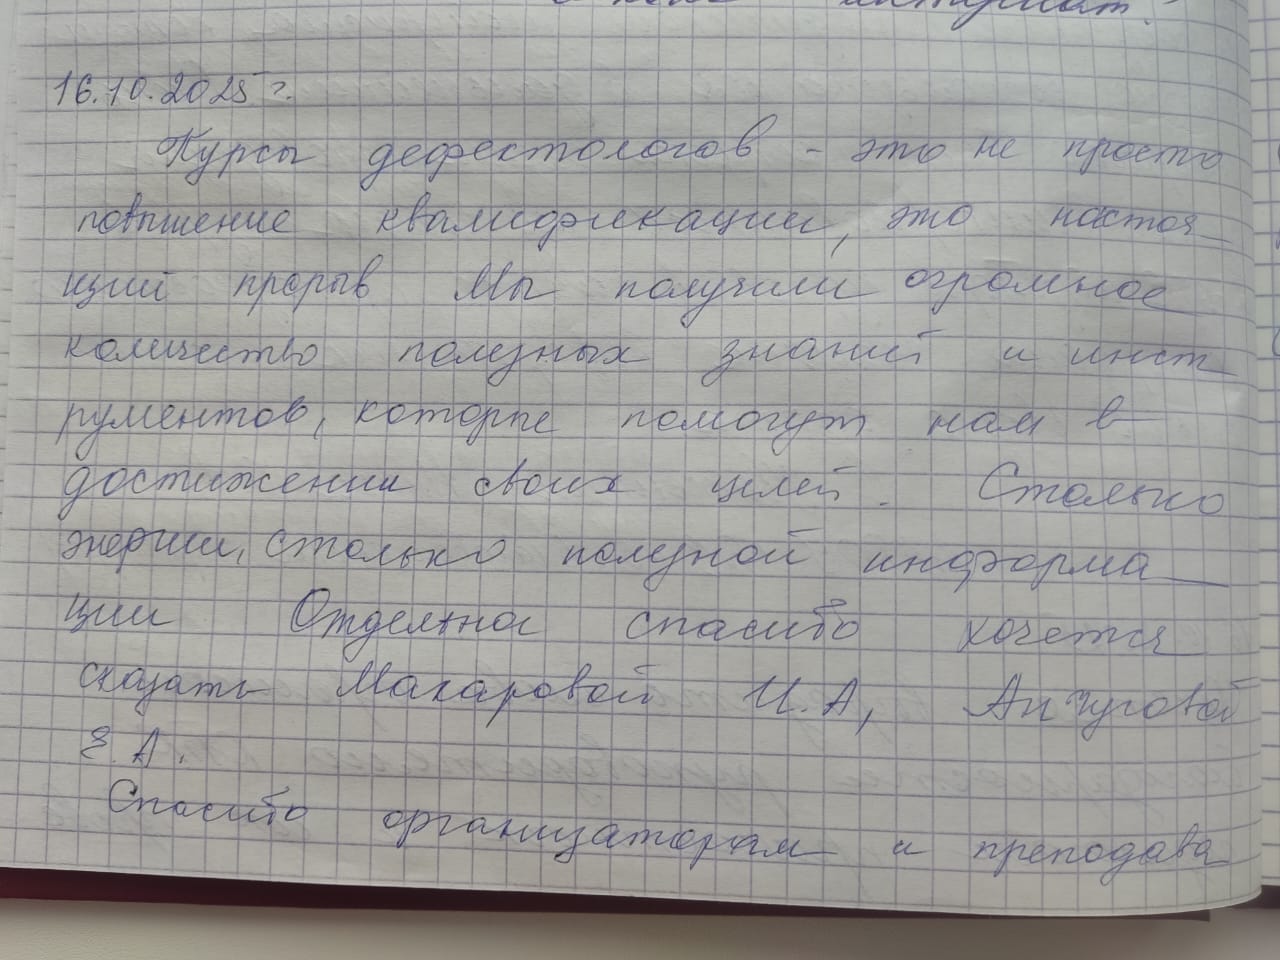 16.10.2025 г.
Курсы дефектологов - это не просто
повышение квалификации, это настоя
щий прорыв Мы получили огромное
количество полезных знаний и инст
рументов, которые помогут нам в
достижении своих целей. Столько
энергии, столько полезной информа
ции Отдельное спасибо хочется
сказать Макаровой И.А, Анчуговой
Е.А.
Спасибо организаторам и преподава